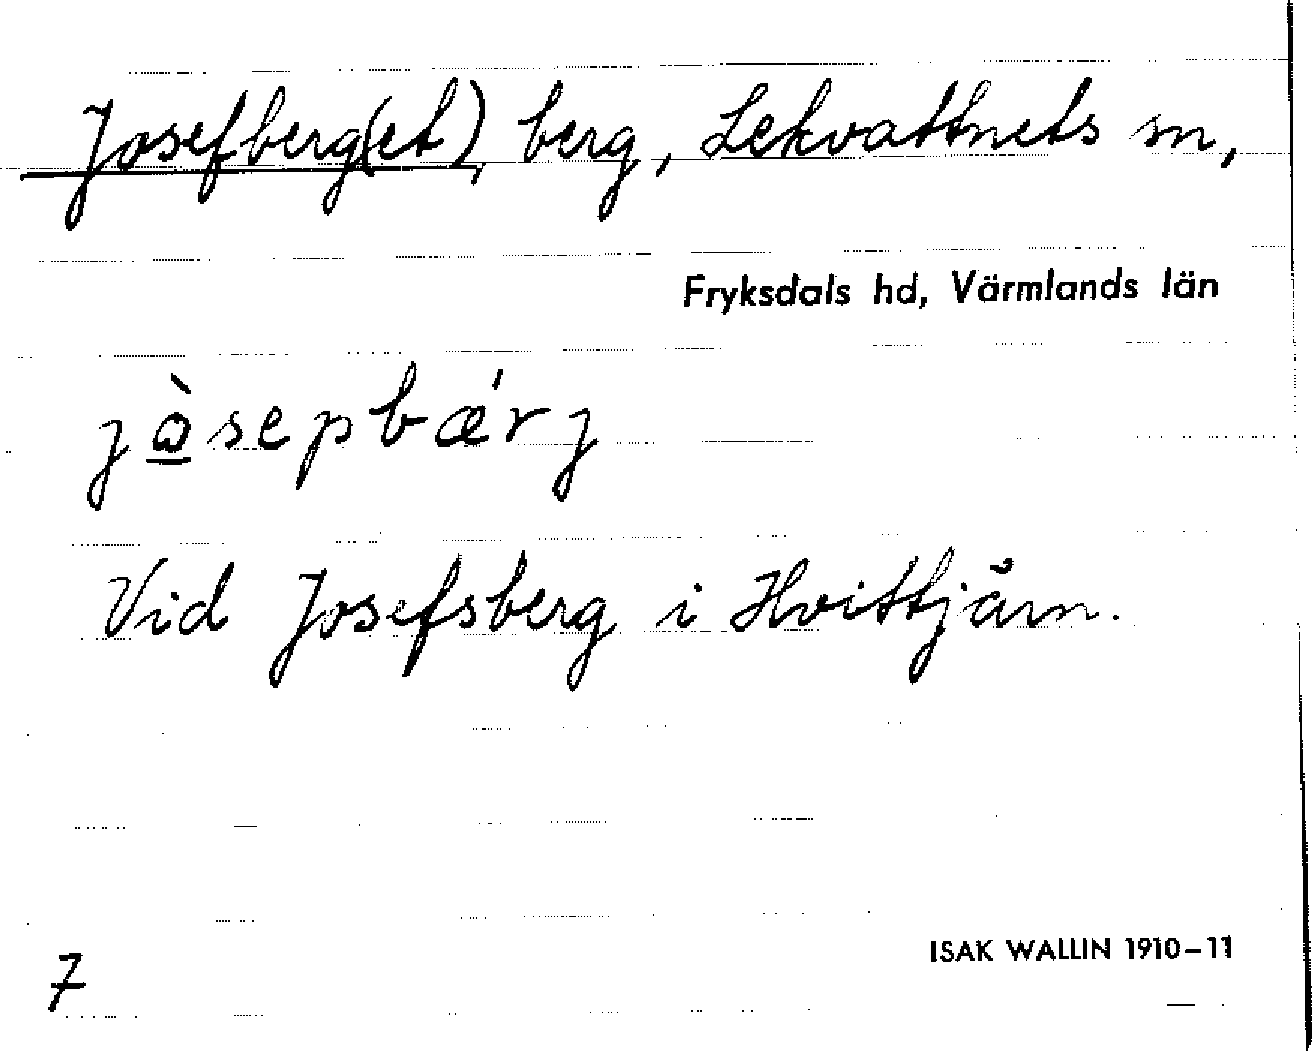 Josefberg(et), berg, Lekvattnets sn,
Fryksdals hd, Värmlands län
jòsepbǽrj
Vid Josefsberg i Hvittjärn.
ISAK WALLIN 1910–11
7